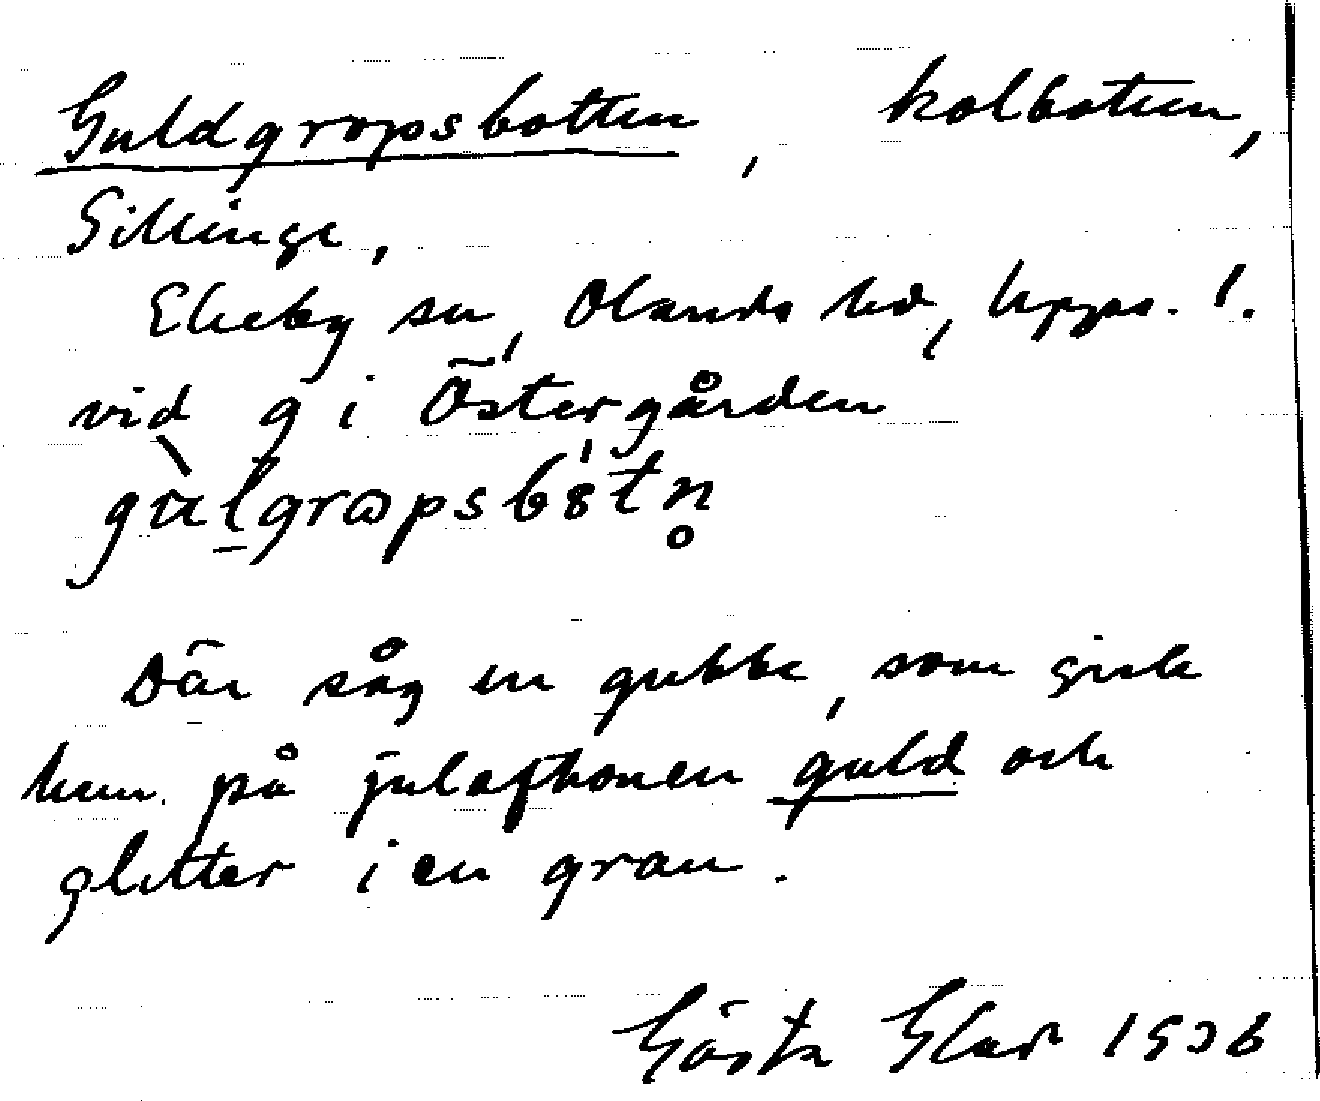 Guldgropsbotten, kolbotten,
Sillinge,
Ekeby sn, Olands hd, Upps. l.
vid g i Östergården
gùlgrɷpsbȣ́tn̥
Där såg en gubbe, som gick
hem på julaftonen guld och
glitter i en gran.
Gösta Klar 1936